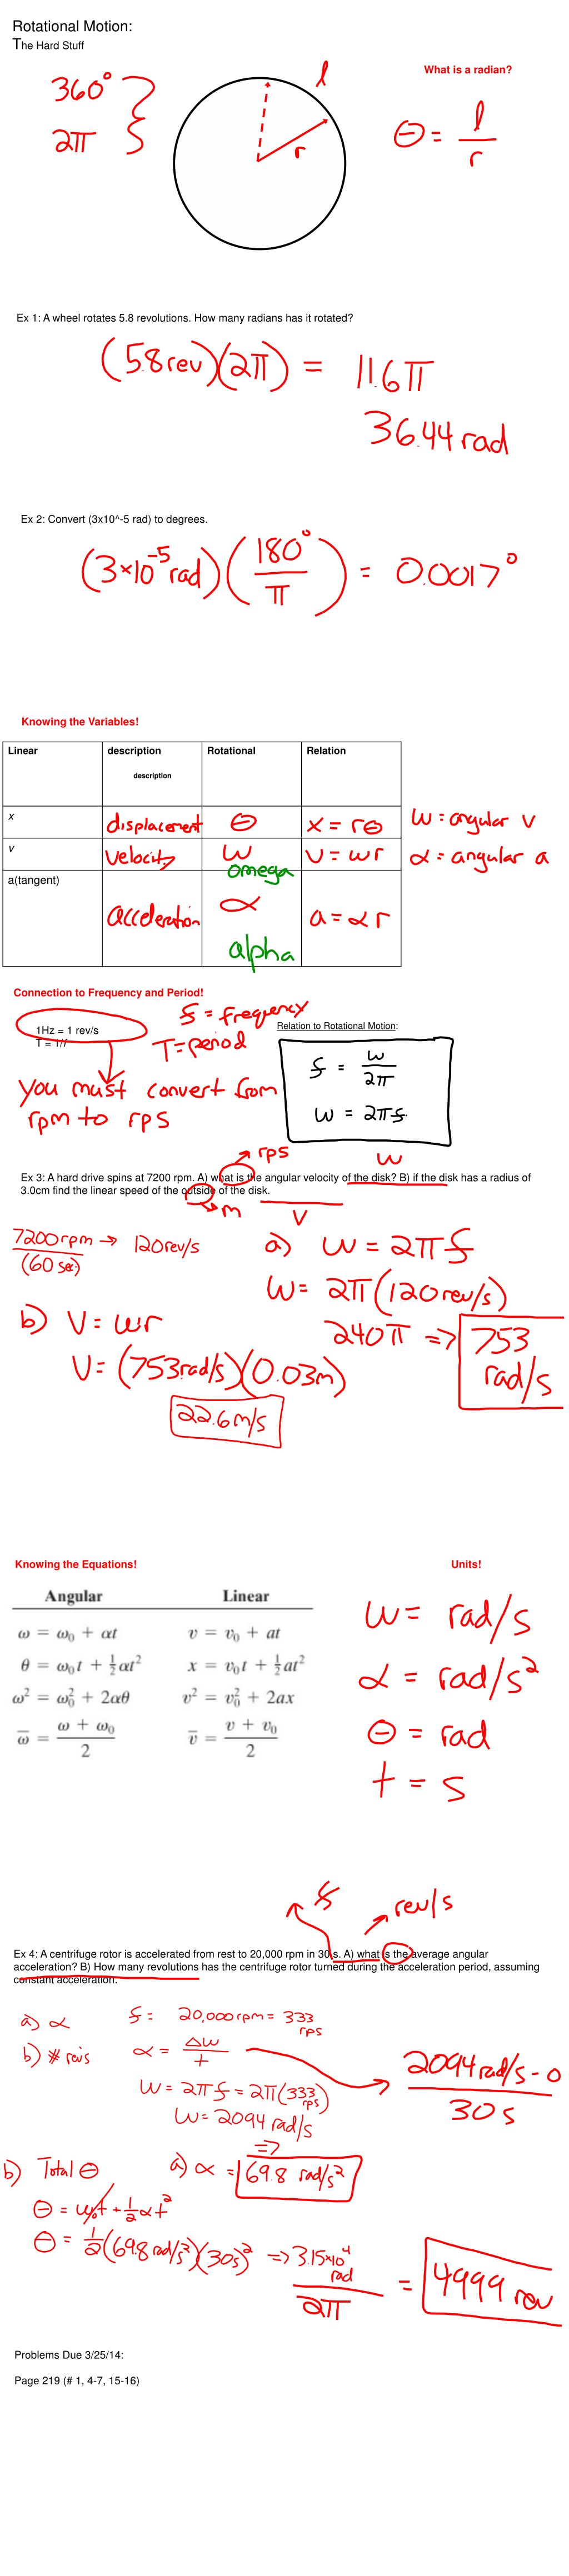 Rotational Motion:
The Hard Stuff
What is a radian?
360°
2π
l
r
θ = l / r
Ex 1: A wheel rotates 5.8 revolutions. How many radians has it rotated?
(5.8 rev)(2π) = 11.6π
36.44 rad
Ex 2: Convert (3x10^-5 rad) to degrees.
(3×10⁻⁵ rad)(180° / π) = 0.0017°
Knowing the Variables!
Linear description Rotational Relation
description
x displacement θ x = rθ
v velocity ω omega v = ωr
a(tangent) acceleration α alpha a = αr
ω = angular v
α = angular a
Connection to Frequency and Period!
1Hz = 1 rev/s
T = 1/f
f = frequency
T = period
you must convert from
rpm to rps
Relation to Rotational Motion:
f = ω / 2π
ω = 2πf
rps
ω
Ex 3: A hard drive spins at 7200 rpm. A) what is the angular velocity of the disk? B) if the disk has a radius of
3.0cm find the linear speed of the outside of the disk.
m
v
7200rpm / (60 sec) → 120rev/s
a) ω = 2πf
ω = 2π(120rev/s)
240π => 753 rad/s
b) V = ωr
V = (753rad/s)(0.03m)
22.6m/s
Knowing the Equations!
Units!
Angular Linear
ω = ω₀ + αt v = v₀ + at
θ = ω₀t + ½αt² x = v₀t + ½at²
ω² = ω₀² + 2αθ v² = v₀² + 2ax
ω̄ = (ω + ω₀) / 2 v̄ = (v + v₀) / 2
ω = rad/s
α = rad/s²
θ = rad
t = s
f
rev/s
Ex 4: A centrifuge rotor is accelerated from rest to 20,000 rpm in 30 s. A) what is the average angular
acceleration? B) How many revolutions has the centrifuge rotor turned during the acceleration period, assuming
constant acceleration.
a) α
b) # revs
f = 20,000rpm = 333 rps
α = Δω / t
ω = 2πf = 2π(333 rps)
ω = 2094 rad/s
2094rad/s - 0 / 30s
=>
a) α = 69.8 rad/s²
b) Total θ
θ = ω₀t + ½αt²
θ = ½(69.8 rad/s²)(30s)² => 3.15×10⁴ rad / 2π = 4999 rev
Problems Due 3/25/14:
Page 219 (# 1, 4-7, 15-16)